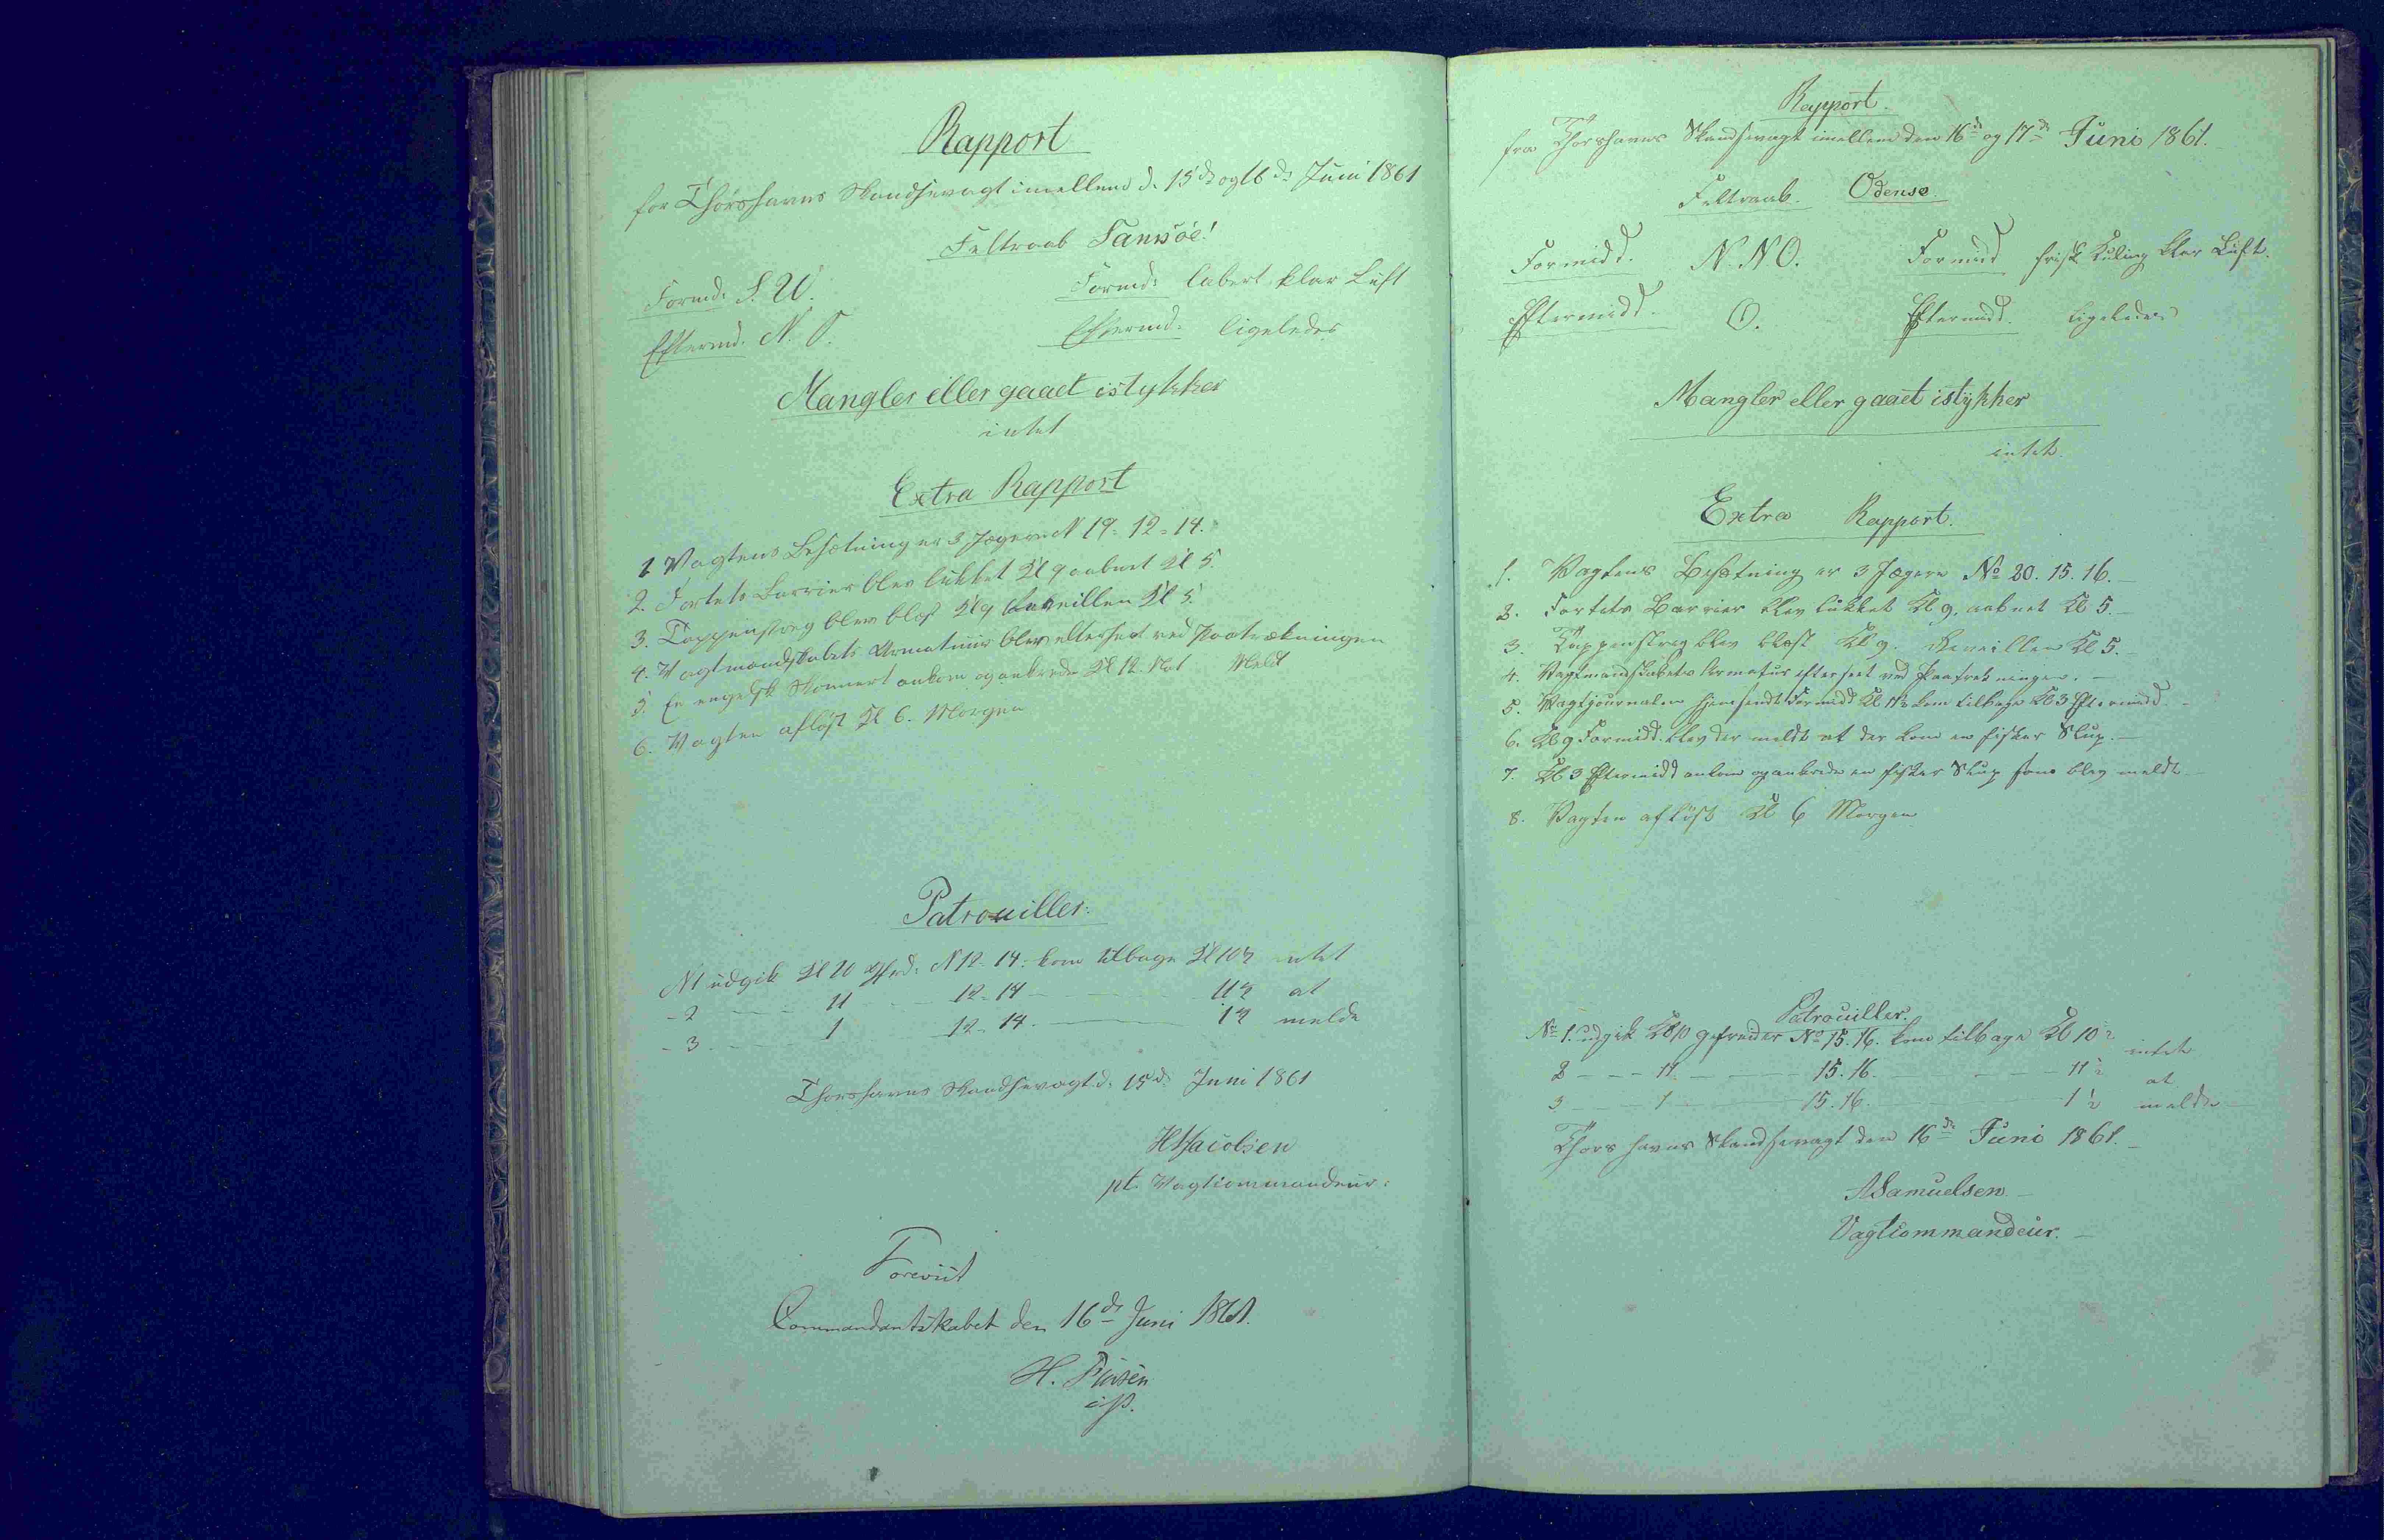 Rapport
for Thorshavns Skandsevagt imellem d. 15de og 16de Juni 1861
Feltraab Samsöe!
Formd: S. W. Formd: labert klar Luft
Efterm. N. O. Efterm. ligeledes
Mangler eller gaaet istykker
intet
Extra Rapport
1 Vagtens Besætning er 3 Jægere N 19. 12. 14.
2. Fortets Barrier blev lukket Kl 9 aabnet Kl 5.
3. Tappenstreg blev blæst Kl 9 Reveillen Kl 5.
4. Vagtmandskabets Armatuur blev efterseet ved Paatrækningen
5. En engelsk Skonnert ankom og ankrede Kl 12. Meldt
6. Vagten aflöst Kl 6. Morgen
Patrouiller.
N1 udgik Kl 10 N 12. 14. kom tilbage Kl 10½ intet
- 2 11 12. 14 11½ at
- 3 1 12. 14. 1½ melde
Thorshavns Skandsevagt d. 15d. Juni 1861
HJacobsen
pt. Vagtcommandeur.
Foreviist
Commandantskabet den 16de Juni 1861.
Rapport.
fra Thorshavns Skandsevagt imellem den 16de og 17de Juni 1861.
Feltraab. Odense.
Formidd. N. NO. Formidd frisk Kuling klar Luft.
Eftermidd. O. Eftermidd. ligeledes
Mangler eller gaaet istykker
intet.
Extra Rapport.
1. Vagtens Besætning er 3 Jægere No 20. 15. 16.
2. Fortets Barrier blev lukket Kl 9, aabnet Kl 5.
3. Tappenstreg blev blæst Kl 9. Reveillen Kl 5.
4. Vagtmandskabets Armatur efterseet ved Paatrækningen.
5. Vagtjournalen hjemsendt Formidd Kl 11½ kom tilbage Kl 3 Eftermidd.
6. Kl 9 Formidd. blev der meldt at der kom en fisker Slup.
7. Kl 3 Eftermidd ankom og ankrede en fisker Slup som blev meldt
8. Vagten aflöst Kl 6 Morgen
Patrouiller.
No 1. udgik Kl 10 gefreider No 15. 16. kom tilbage Kl 10½ intet
2 11 15. 16. 11½ at
3 1 15. 16. 1½ melde
Thorshavns Skandsevagt den 16de Juni 1861.
ASamuelsen.
Vagtcommandeur.